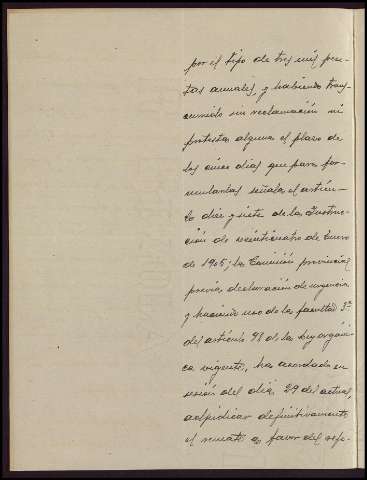 por el tipo de tres mil pese-
tas anuales, y habiendo trans-
currido sin reclamación ni
protesta alguna el plazo de
los cinco dias que para for-
mularlas señala el artícu-
lo diez y siete de la Instruc-
ción de veinticuatro de Enero
de 1905; la Comisión provincial
previa declaración de urgencia
y haciendo uso de la facultad 3ª
del artículo 98 de la ley orgáni-
ca vigente, ha acordado en
sesión del dia 29 del actual,
adjudicar definitivamente
el remate a favor del refe-